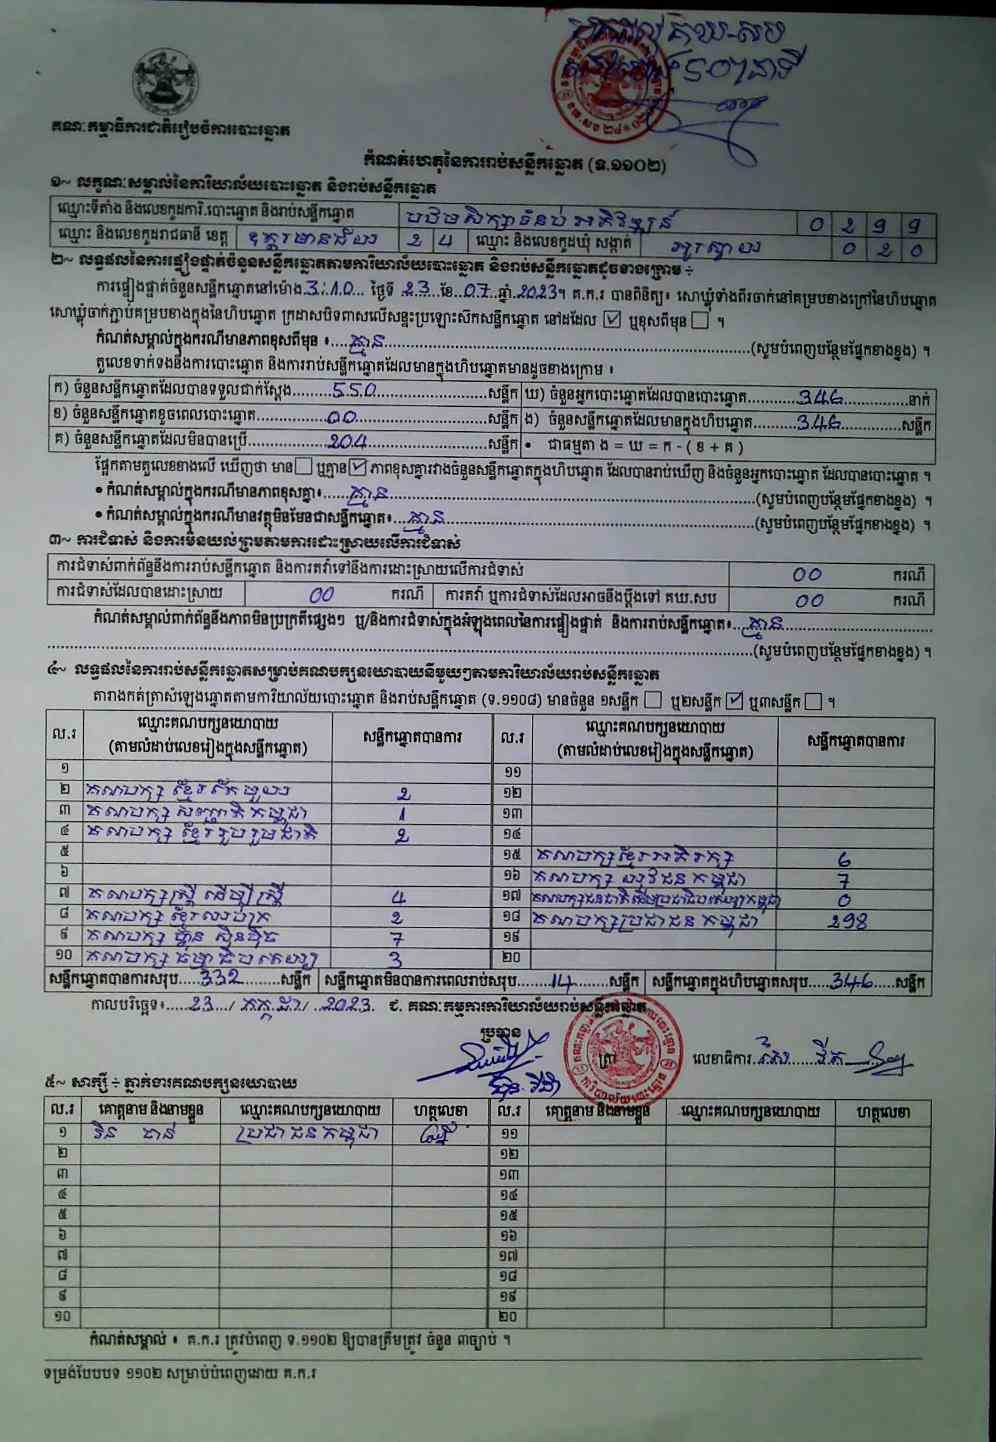 គណៈកម្មាធិការជាតិរៀបចំការបោះឆ្នោត
កំណត់ហេតុនៃការរាប់សន្លឹកឆ្នោត (ទ.១១០២)
១~ លក្ខណៈសម្គាល់នៃការិយាល័យបោះឆ្នោត និងរាប់សន្លឹកឆ្នោត
ឈ្មោះទីតាំង និងលេខកូដការិ.បោះឆ្នោត និងរាប់សន្លឹកឆ្នោត បឋមសិក្សាទំនប់ អភិវឌ្ឍន៍ 0 2 9 9
ឈ្មោះ និងលេខកូដរាជធានី ខេត្ត ឧត្ដរមានជ័យ 2 4 ឈ្មោះ និងលេខកូដឃុំ សង្កាត់ អូរស្វាយ 0 2 0
២~ លទ្ធផលនៃការផ្ទៀងផ្ទាត់ចំនួនសន្លឹកឆ្នោតតាមការិយាល័យបោះឆ្នោត និងរាប់សន្លឹកឆ្នោតដូចខាងក្រោម ÷
ការផ្ទៀងផ្ទាត់ចំនួនសន្លឹកឆ្នោតនៅម៉ោង 3:10 ថ្ងៃទី 23 ខែ 07 ឆ្នាំ 2023។ គ.ក.រ បានពិនិត្យ៖ សោឃ្លុំទាំងពីរចាក់នៅគម្របខាងក្រៅនៃហិបឆ្នោត
សោឃ្លុំចាក់ភ្ជាប់គម្របខាងក្នុងនៃហិបឆ្នោត ក្រដាសបិទពាសលើសន្ទះប្រឡោះស៊កសន្លឹកឆ្នោត នៅដដែល ☑ ឬខុសពីមុន ☐ ។
កំណត់សម្គាល់ក្នុងករណីមានភាពខុសពីមុន ៖ គ្មាន (សូមបំពេញបន្ថែមផ្នែកខាងខ្នង) ។
តួលេខទាក់ទងនឹងការបោះឆ្នោត និងការរាប់សន្លឹកឆ្នោតដែលមានក្នុងហិបឆ្នោតមានដូចខាងក្រោម ៖
ក) ចំនួនសន្លឹកឆ្នោតដែលបានទទួលជាក់ស្តែង 550 សន្លឹក ឃ) ចំនួនអ្នកបោះឆ្នោតដែលបានបោះឆ្នោត 346 នាក់
ខ) ចំនួនសន្លឹកឆ្នោតខូចពេលបោះឆ្នោត 00 សន្លឹក ង) ចំនួនសន្លឹកឆ្នោតដែលមានក្នុងហិបឆ្នោត 346 សន្លឹក
គ) ចំនួនសន្លឹកឆ្នោតដែលមិនបានប្រើ 204 សន្លឹក • ជាធម្មតា ង = ឃ = ក - ( ខ + គ )
ផ្អែកតាមតួលេខខាងលើ ឃើញថា មាន ☐ ឬគ្មាន ☑ ភាពខុសគ្នារវាងចំនួនសន្លឹកឆ្នោតក្នុងហិបឆ្នោត ដែលបានរាប់ឃើញ និងចំនួនអ្នកបោះឆ្នោត ដែលបានបោះឆ្នោត ។
• កំណត់សម្គាល់ក្នុងករណីមានភាពខុសគ្នា៖ គ្មាន (សូមបំពេញបន្ថែមផ្នែកខាងខ្នង) ។
• កំណត់សម្គាល់ក្នុងករណីមានវត្ថុមិនមែនជាសន្លឹកឆ្នោត៖ គ្មាន (សូមបំពេញបន្ថែមផ្នែកខាងខ្នង) ។
៣~ ការជំទាស់ និងការមិនយល់ព្រមតាមការដោះស្រាយលើការជំទាស់
ការជំទាស់ពាក់ព័ន្ធនឹងការរាប់សន្លឹកឆ្នោត និងការតវ៉ាទៅនឹងការដោះស្រាយលើការជំទាស់ 00 ករណី
ការជំទាស់ដែលបានដោះស្រាយ 00 ករណី ការតវ៉ា ឬការជំទាស់ដែលអាចនឹងប្តឹងទៅ គឃ.សប 00 ករណី
កំណត់សម្គាល់ពាក់ព័ន្ធនឹងភាពមិនប្រក្រតីផ្សេងៗ ឬ/និងការជំទាស់ក្នុងអំឡុងពេលនៃការផ្ទៀងផ្ទាត់ និងការរាប់សន្លឹកឆ្នោត៖ គ្មាន
(សូមបំពេញបន្ថែមផ្នែកខាងខ្នង) ។
៤~ លទ្ធផលនៃការរាប់សន្លឹកឆ្នោតសម្រាប់គណបក្សនយោបាយនីមួយៗតាមការិយាល័យរាប់សន្លឹកឆ្នោត
តារាងកត់ត្រាសំឡេងឆ្នោតតាមការិយាល័យបោះឆ្នោត និងរាប់សន្លឹកឆ្នោត (ទ.១១០៨) មានចំនួន ១សន្លឹក ☐ ឬ២សន្លឹក ☑ ឬ៣សន្លឹក ☐ ។
ល.រ ឈ្មោះគណបក្សនយោបាយ (តាមលំដាប់លេខរៀងក្នុងសន្លឹកឆ្នោត) សន្លឹកឆ្នោតបានការ ល.រ ឈ្មោះគណបក្សនយោបាយ (តាមលំដាប់លេខរៀងក្នុងសន្លឹកឆ្នោត) សន្លឹកឆ្នោតបានការ
១ ១១
២ គណបក្ស ខ្មែរតែមួយ 2 ១២
៣ គណបក្ស សញ្ជាតិកម្ពុជា 1 ១៣
៤ គណបក្ស ខ្មែររួបរួមជាតិ 2 ១៤
៥ ១៥ គណបក្សខ្មែរអភិរក្ស 6
៦ ១៦ គណបក្ស យុវជនកម្ពុជា 7
៧ គណបក្សស្ត្រី ដើម្បីស្ត្រី 4 ១៧ 0
៨ គណបក្ស ខ្មែរឈប់ក្រ 2 ១៨ គណបក្សប្រជាជនកម្ពុជា 298
៩ គណបក្ស ហ្វ៊ុនស៊ិនប៉ិច 7 ១៩
១០ គណបក្ស ធម្មាធិបតេយ្យ 3 ២០
សន្លឹកឆ្នោតបានការសរុប 332 សន្លឹក សន្លឹកឆ្នោតមិនបានការពេលរាប់សរុប 14 សន្លឹក សន្លឹកឆ្នោតក្នុងហិបឆ្នោតសរុប 346 សន្លឹក
កាលបរិច្ឆេទ៖ 23 / កក្កដា / 2023 ជ. គណៈកម្មការការិយាល័យរាប់សន្លឹកឆ្នោត
ប្រធាន
ត្រា លេខាធិការ
៥~ សាក្សី ÷ ភ្នាក់ងារគណបក្សនយោបាយ
ល.រ គោត្តនាម និងនាមខ្លួន ឈ្មោះគណបក្សនយោបាយ ហត្ថលេខា ល.រ គោត្តនាម និងនាមខ្លួន ឈ្មោះគណបក្សនយោបាយ ហត្ថលេខា
១ ប្រជាជនកម្ពុជា ១១
២ ១២
៣ ១៣
៤ ១៤
៥ ១៥
៦ ១៦
៧ ១៧
៨ ១៨
៩ ១៩
១០ ២០
កំណត់សម្គាល់ ៖ គ.ក.រ ត្រូវបំពេញ ទ.១១០២ ឱ្យបានត្រឹមត្រូវ ចំនួន ៣ច្បាប់ ។
ទម្រង់បែបបទ ១១០២ សម្រាប់បំពេញដោយ គ.ក.រ